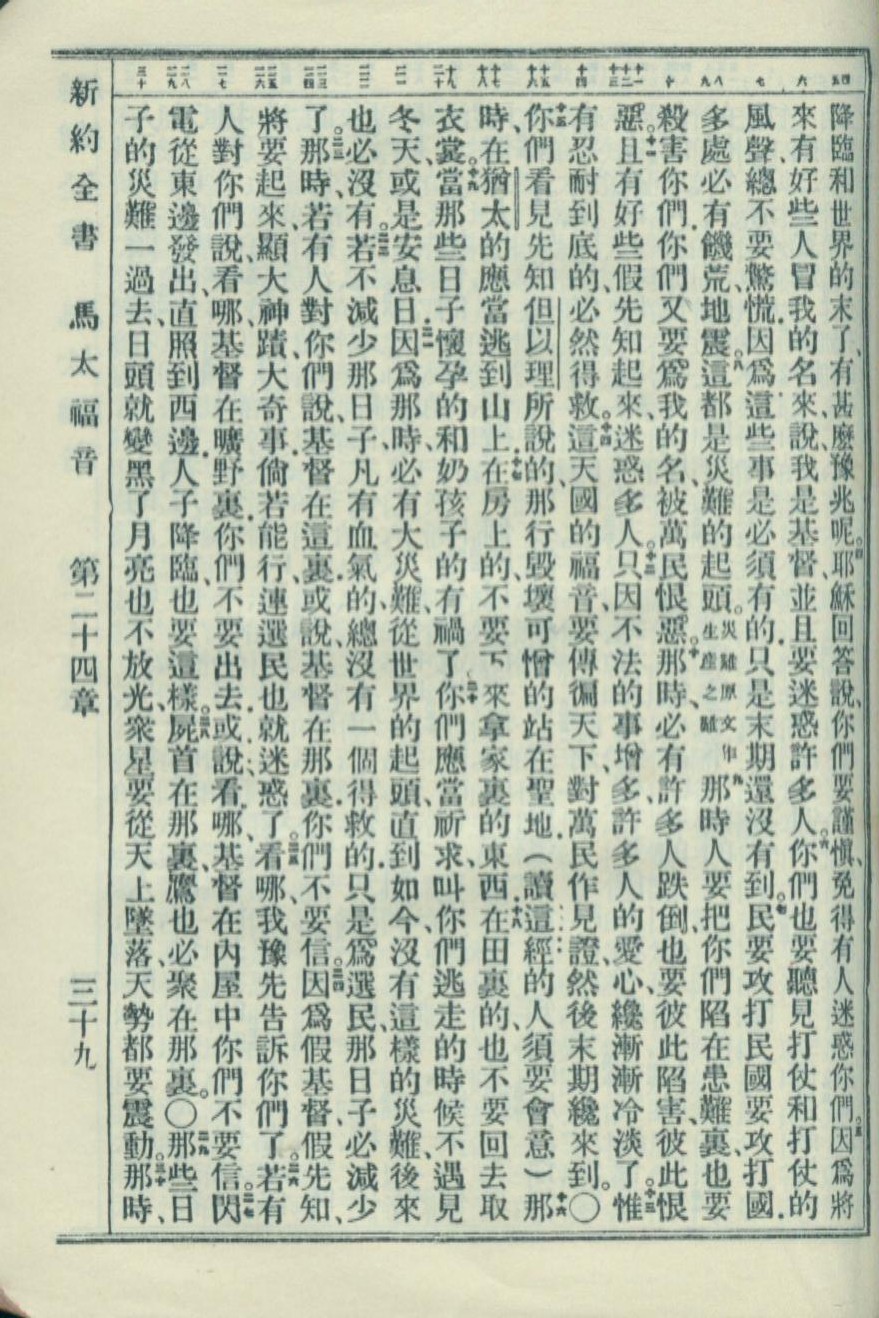 四 五 六 七 八 九 十 十一 十二 十三 十四 十五 十六 十七 十八 十九 二十 二一 二二 二三 二四 二五 二六 二七 二八 二九 三十
降臨和世界的末了、有甚麼豫兆呢。四耶穌回答說、你們要謹愼、免得有人迷惑你們。五因爲將
來有好些人冒我的名來說、我是基督、並且要迷惑許多人。六你們也要聽見打仗和打仗的
風聲、總不要驚慌.因爲這些事是必須有的.只是末期還沒有到。七民要攻打民、國要攻打國.
多處必有饑荒、地震。八這都是災難的起頭。災難原文作生產之難九那時人要把你們陷在患難裏、也要
殺害你們.你們又要爲我的名、被萬民恨惡。十那時必有許多人跌倒、也要彼此陷害、彼此恨
惡。十一且有好些假先知起來、迷惑多人。十二只因不法的事增多、許多人的愛心、纔漸漸冷淡了。十三惟
有忍耐到底的、必然得救。十四這天國的福音、要傳徧天下、對萬民作見證、然後末期纔來到。〇
十五你們看見先知但以理所說的、那行毀壞可憎的、站在聖地.（讀這經的人、須要會意）十六那
時、在猶太的、應當逃到山上.十七在房上的、不要下來拿家裏的東西.十八在田裏的、也不要回去取
衣裳。十九當那些日子、懷孕的和奶孩子的有禍了。二十你們應當祈求、叫你們逃走的時候、不遇見
冬天、或是安息日.二一因爲那時、必有大災難、從世界的起頭、直到如今、沒有這樣的災難、後來
也必沒有。二二若不減少那日子、凡有血氣的、總沒有一個得救的.只是爲選民、那日子必減少
了。二三那時若有人對你們說、基督在這裏、或說、基督在那裏.你們不要信。二四因爲假基督、假先知、
將要起來、顯大神蹟、大奇事.倘若能行、連選民也就迷惑了。二五看哪、我豫先告訴你們了。二六若有
人對你們說、看哪、基督在曠野裏.你們不要出去.或說、看哪、基督在內屋中.你們不要信。二七閃
電從東邊發出、直照到西邊.人子降臨、也要這樣。二八屍首在那裏、鷹也必聚在那裏。〇二九那些日
子的災難一過去、日頭就變黑了、月亮也不放光、衆星要從天上墜落、天勢都要震動。三十那時、
新約全書 馬太福音 第二十四章 三十九